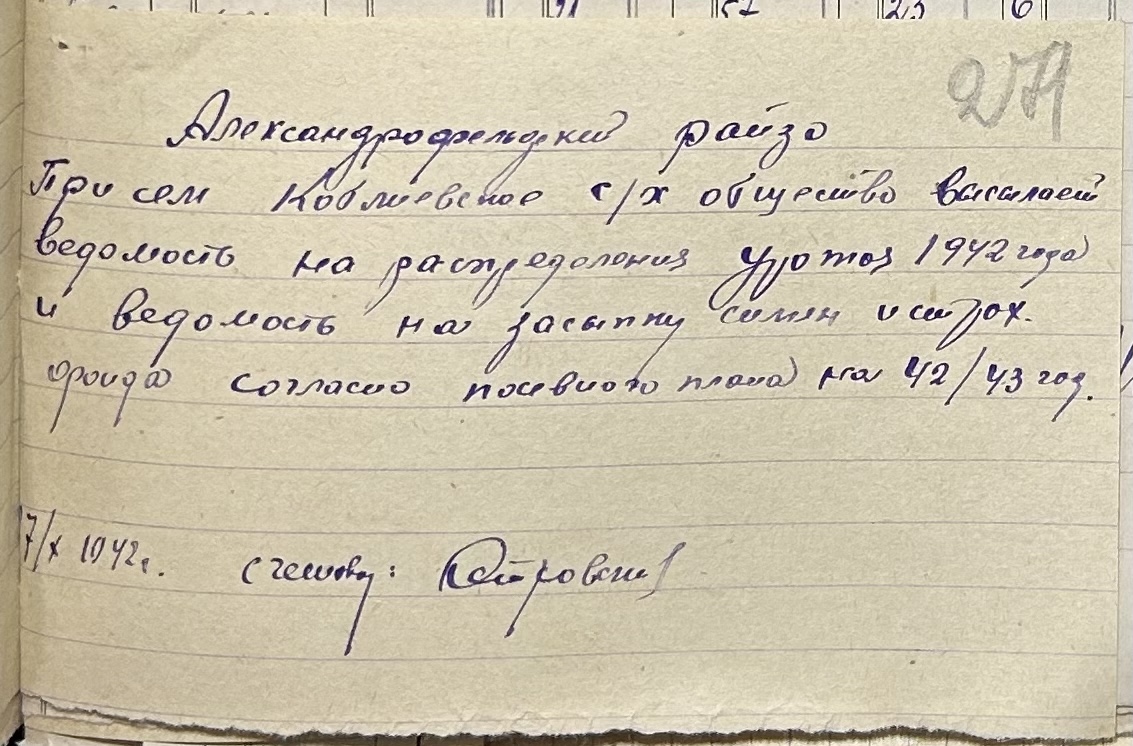 274
Александрофельдский райзо
При сем Коблиевское с/х общество высылает
ведомость на распределения урожая 1942 года
и ведомость на засыпку симян и страх.
фонда согласно посевного плана на 42/43 год.
7/X 1942 г. счетовод: Островский